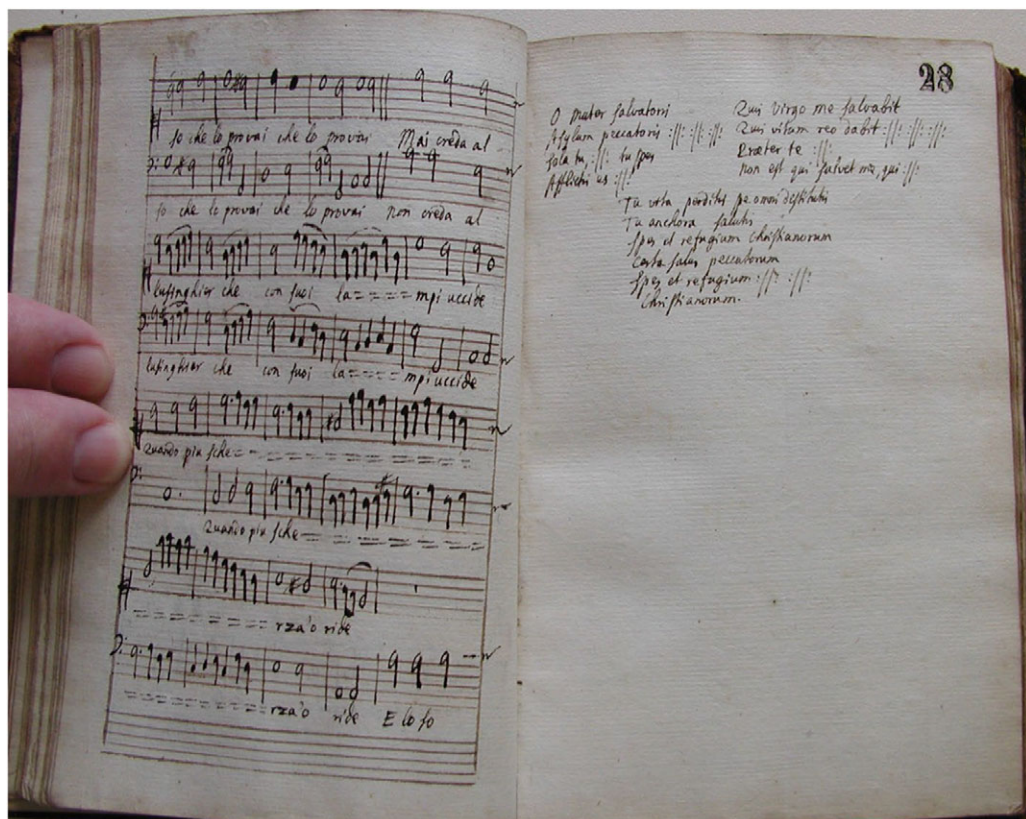 Io che lo provai che lo provai Mai creda al
Io che lo provai che lo provai non creda al
lusinghier che con suoi la==== mpi uccide
lusinghier che con suoi la==== mpi uccide
Quando piu sche=
Quando piu sche
rza'o ride
rza'o ride E lo so
28
O mater salvatoris
Asylum peccatoris :||: :||: :||:
sola tu, :||: tu spes
Afflicti es :||:
Qui virgo me salvabit
Qui vitam reo dabit :||: :||: :||:
Præter te :||:
non est qui salvet me, qui :||:
Tu vita perditis spe omni destitutis
Tu anchora salutis
Spes et refugium Christianorum
Certa salus peccatorum
Spes et refugium :||: :||:
Christianorum.